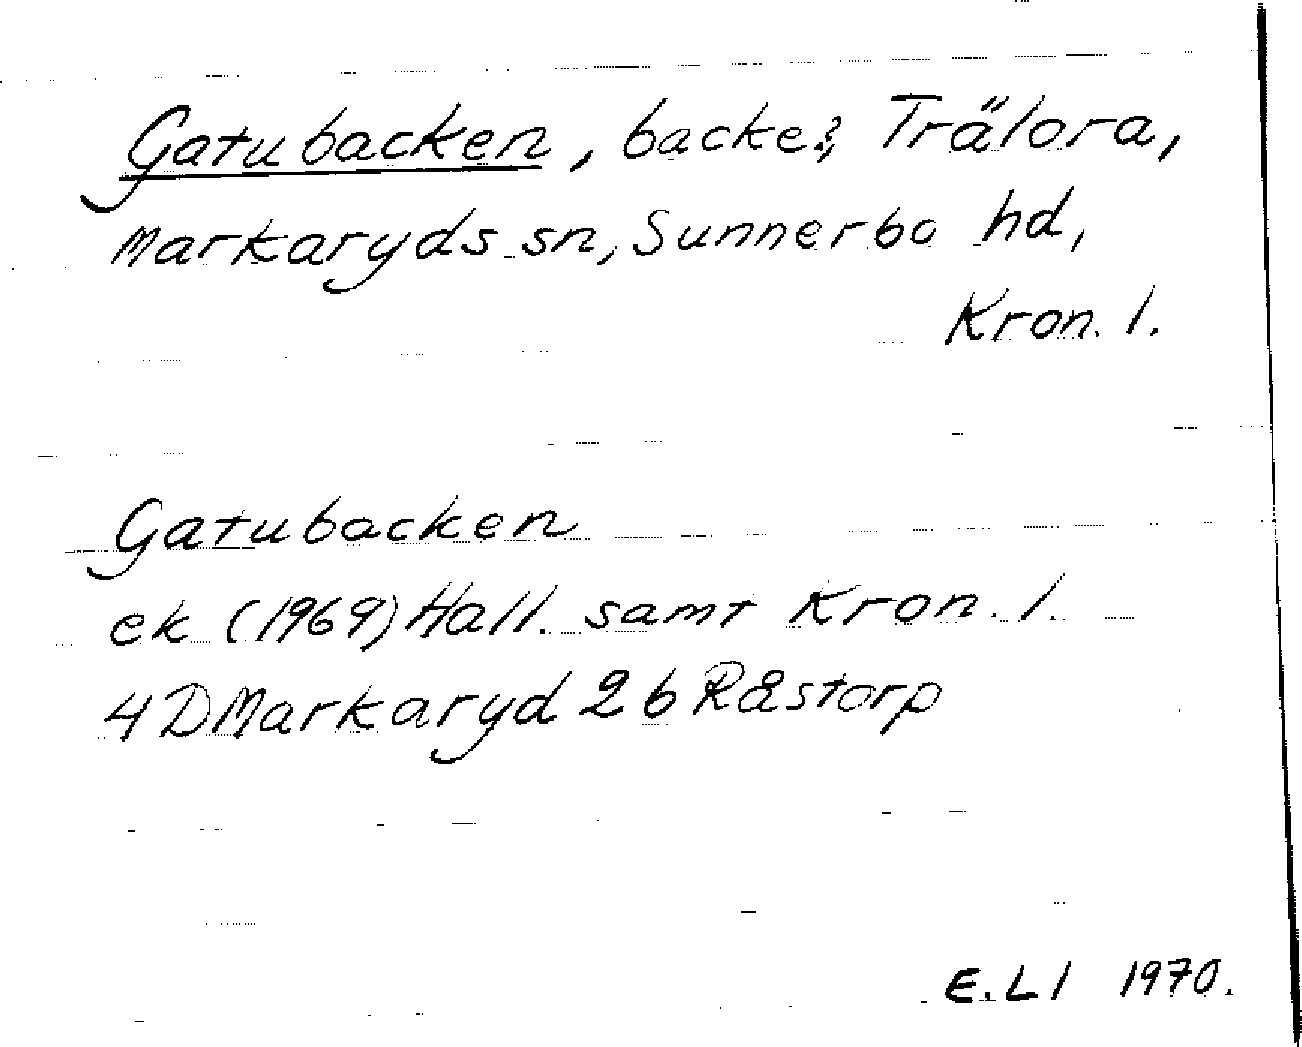 Gatubacken, backe?, Trälora,
Markaryds sn, Sunnerbo hd,
Kron. l.
Gatubacken
ek (1969) Hall. samt Kron. l.
4D Markaryd 2b Råstorp
E. L l 1970.